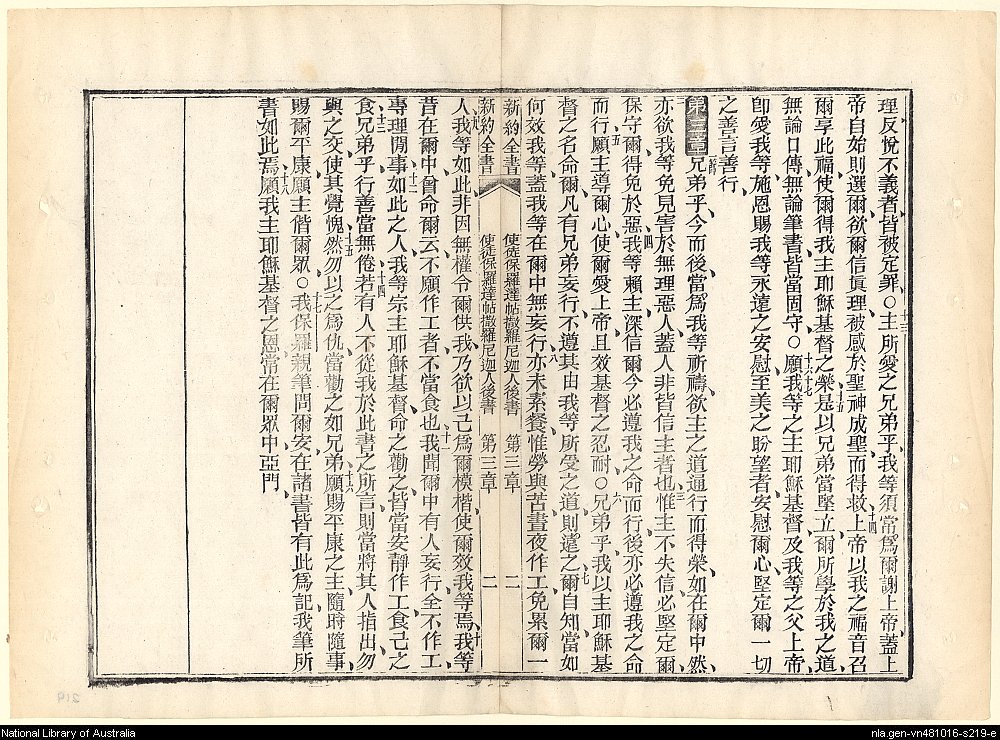 理反悅不義者皆被定罪○十三主所愛之兄弟乎我等須常爲爾謝上帝蓋上
帝自始則選爾欲爾信眞理被感於聖神成聖而得救十四上帝以我之福音召
爾享此福使爾得我主耶穌基督之榮十五是以兄弟當堅立爾所學於我之道
無論口傳無論筆書皆當固守○十六十七願我等之主耶穌基督及我等之父上帝
卽愛我等施恩賜我等永遠之安慰至美之盼望者安慰爾心堅定爾一切
之善言善行
第三章一兄弟乎今而後當爲我等祈禱欲主之道通行而得榮如在爾中然
二亦欲我等免見害於無理惡人蓋人非皆信主者也三惟主不失信必堅定爾
保守爾得免於惡四我等賴主深信爾今必遵我之命而行後亦必遵我之命
而行五願主導爾心使爾愛上帝且效基督之忍耐○六兄弟乎我以主耶穌基
督之名命爾凡有兄弟妄行不遵其由我等所受之道則遠之七爾自知當如
何效我等蓋我等在爾中無妄行八亦未素餐惟勞與苦晝夜作工免累爾一
新約全書 使徒保羅達帖撒羅尼迦人後書 第三章 二
新約全書 使徒保羅達帖撒羅尼迦人後書 第三章 二
人九我等如此非因無權令爾供我乃欲以己爲爾模楷使爾效我等焉十我等
昔在爾中曾命爾云不願作工者不當食也十一我聞爾中有人妄行全不作工
專理閒事十二如此之人我等宗主耶穌基督命之勸之皆當安靜作工食己之
食十三兄弟乎行善當無倦十四若有人不從我於此書之所言則當將其人指出勿
與之交使其覺愧十五然勿以之爲仇當勸之如兄弟十六願賜平康之主隨時隨事
賜爾平康願主偕爾眾○十七我保羅親筆問爾安在諸書皆有此爲記我筆所
書如此焉十八願我主耶穌基督之恩常在爾眾中亞門
219
National Library of Australia
nla.gen-vn481016-s219-e